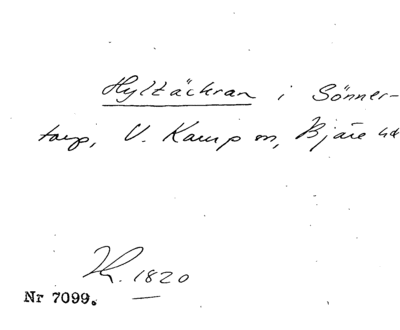 Hyltäckran i Sönner-
torp, V. Karup sn, Bjäre hd
Kr. 1820
Nr 7099.